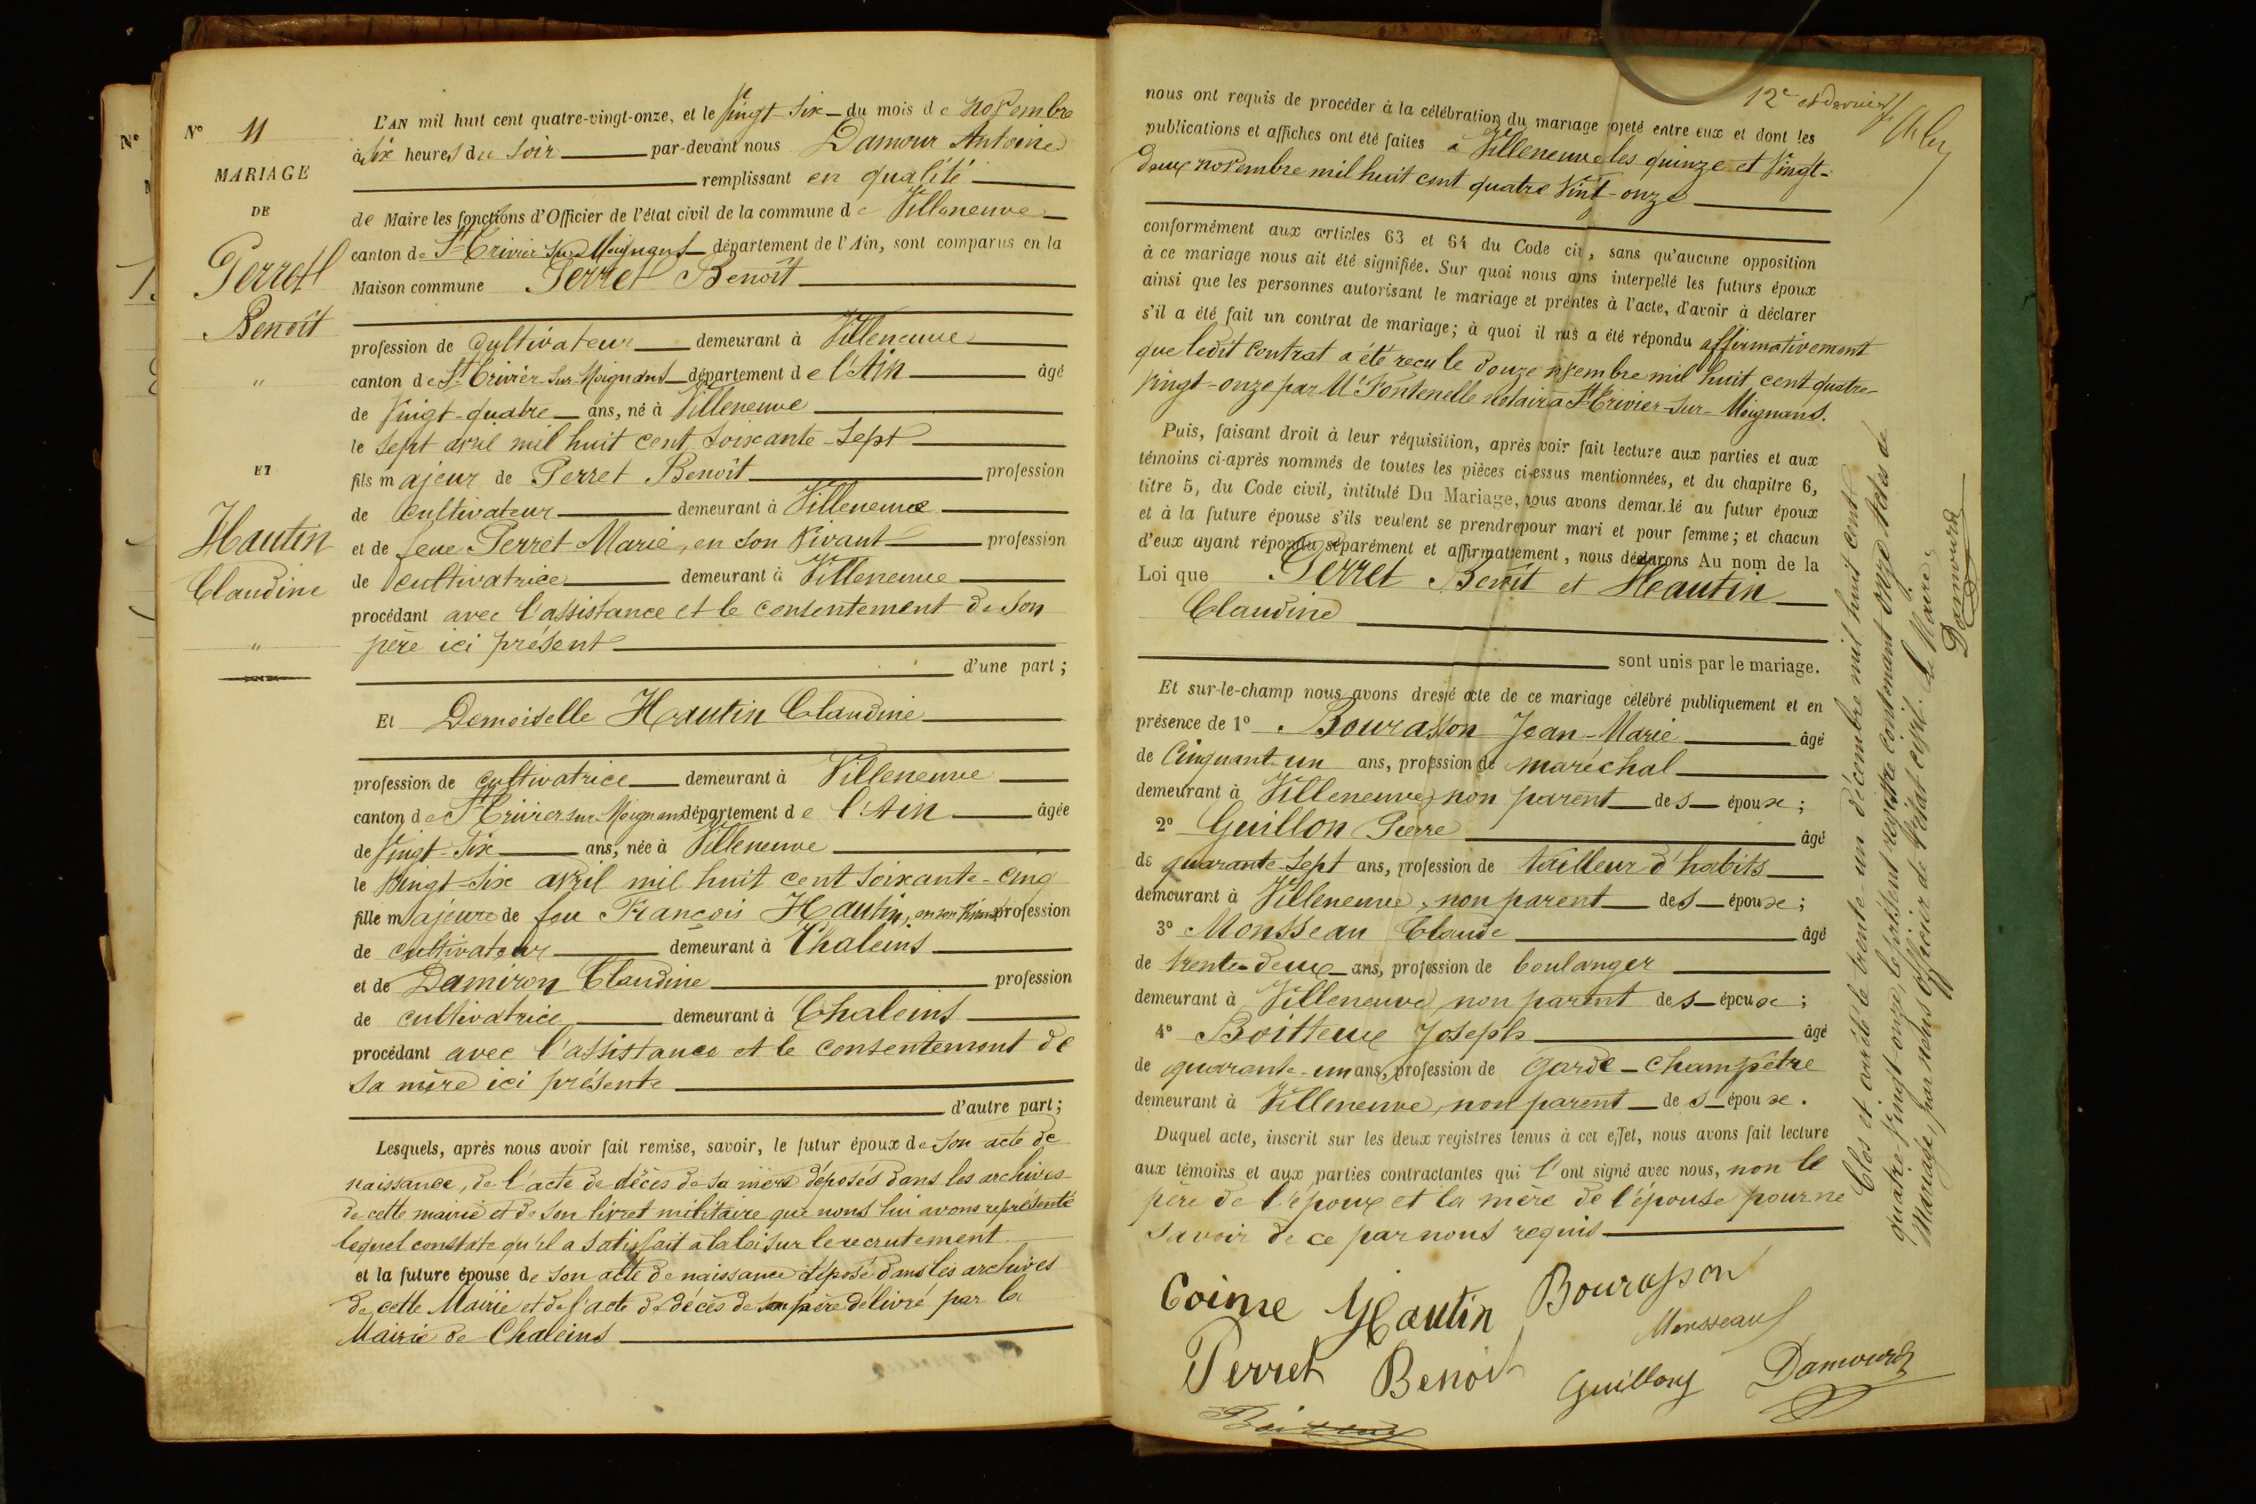 N°
N° 11
MARIAGE
DE
Perret
Benoît
"
ET
Hautin
Claudine
"
L'AN mil huit cent quatre-vingt-onze, et le Vingt-Six du mois de novembre
à six heures du soir par-devant nous Damour Antoine
remplissant en qualité
de Maire les fonctions d'Officier de l'état civil de la commune de Villeneuve
canton de St Trivier-sur-Moignans département de l'Ain, sont comparus en la
Maison commune Perret Benoît
profession de cultivateur demeurant à Villeneuve
canton de St Trivier-sur-Moignans département de l'Ain âgé
de Vingt-quatre ans, né à Villeneuve
le sept avril mil huit cent soixante-sept
fils majeur de Perret Benoît profession
de cultivateur demeurant à Villeneuve
et de feue Perret Marie, en son vivant profession
de cultivatrice demeurant à Villeneuve
procédant avec l'assistance et le consentement de son
père ici présent
d'une part;
Et Demoiselle Hautin Claudine
profession de cultivatrice demeurant à Villeneuve
canton de St Trivier-sur-Moignans département de l'Ain âgée
de Vingt-Six ans, née à Villeneuve
le Vingt-six avril mil huit cent soixante-cinq
fille majeure de feu François Hautin, en son vivant profession
de cultivateur demeurant à Chaleins
et de Damiron Claudine profession
de cultivatrice demeurant à Chaleins
procédant avec l'assistance et le consentement de
sa mère ici présente
d'autre part;
Lesquels, après nous avoir fait remise, savoir, le futur époux de son acte de
naissance, de l'acte de décès de sa mère déposés dans les archives
de cette mairie et de son livret militaire que nous lui avons représenté
lequel constate qu'il a satisfait à la loi sur le recrutement
et la future épouse de son acte de naissance déposé dans les archives
de cette Mairie et de l'acte de décès de son père délivré par la
Mairie de Chaleins
12e et dernier
nous ont requis de procéder à la célébration du mariage projeté entre eux et dont les
publications et affiches ont été faites à Villeneuve les quinze et Vingt-
deux novembre mil huit cent quatre vint-onze
conformément aux articles 63 et 64 du Code civ, sans qu'aucune opposition
à ce mariage nous ait été signifiée. Sur quoi nous avons interpellé les futurs époux
ainsi que les personnes autorisant le mariage et présentes à l'acte, d'avoir à déclarer
s'il a été fait un contrat de mariage; à quoi il nous a été répondu affirmativement
que ledit contrat a été reçu le douze novembre mil huit cent quatre-
vingt-onze par Me Fontenelle notaire à St Trivier-sur-Moignans.
Puis, faisant droit à leur réquisition, après avoir fait lecture aux parties et aux
témoins ci-après nommés de toutes les pièces ci-dessus mentionnées, et du chapitre 6,
titre 5, du Code civil, intitulé Du Mariage, nous avons demandé au futur époux
et à la future épouse s'ils veulent se prendre pour mari et pour femme; et chacun
d'eux ayant répondu séparément et affirmativement, nous déclarons Au nom de la
Loi que Perret Benoît et Hautin
Claudine
sont unis par le mariage.
Et sur-le-champ nous avons dressé acte de ce mariage célébré publiquement et en
présence de 1° Bourasson Jean-Marie âgé
de Cinquant-un ans, profession de maréchal
demeurant à Villeneuve, non parent des époux;
2° Guillon Pierre âgé
de quarante-sept ans, profession de tailleur d'habits
demeurant à Villeneuve, non parent des époux;
3° Monsseau Claude âgé
de trente-deux ans, profession de boulanger
demeurant à Villeneuve, non parent des époux;
4° Boitteux Joseph âgé
de quarante-un ans, profession de garde-champêtre
demeurant à Villeneuve, non parent des époux.
Duquel acte, inscrit sur les deux registres tenus à cet effet, nous avons fait lecture
aux témoins et aux parties contractantes qui l'ont signé avec nous, non le
père de l'époux et la mère de l'épouse pour ne
savoir de ce par nous requis
Coime Hautin Bourasson
Monsseau
Perret Benoit Guillon Damour
Clos et arrêté le trente-un décembre mil huit cent
quatre-vingt-onze, le présent registre contenant onze actes de
Mariage, par nous officier de l'état civil. Le Maire,
Damour